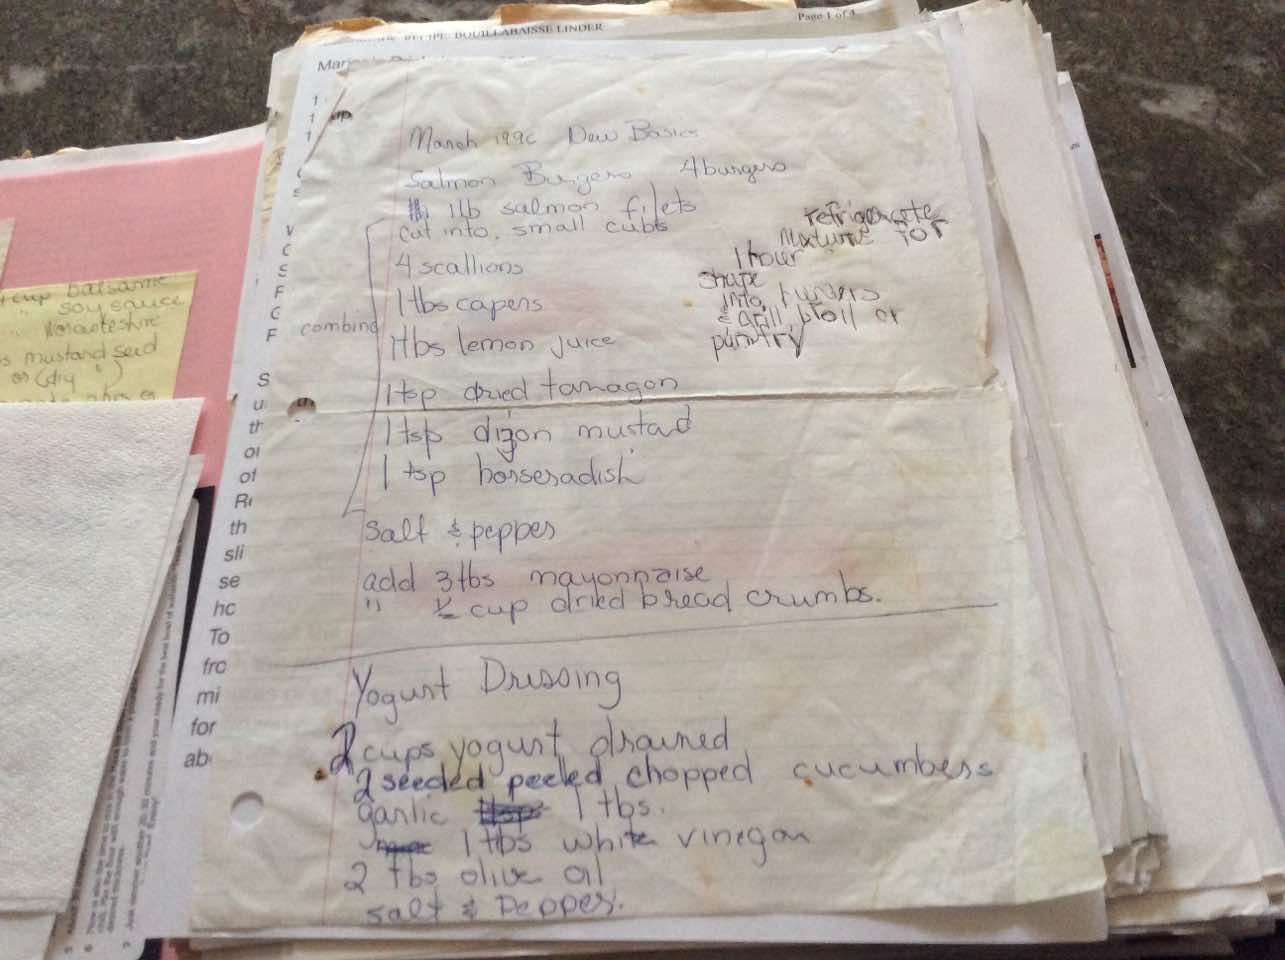 RECIPE: BOUILLABAISSE LINDER
Page 1 of 4
March 199c New Basics
Salmon Burgers 4 burgers
1 lb salmon filets
cut into small cubs
4 scallions
1 tbs capers
combine
1 tbs lemon juice
1 tsp dried tarragon
1 tsp dijon mustard
1 tsp horseradish
salt & pepper
add 3 tbs mayonnaise
" ½ cup dried bread crumbs.
refrigerate
mixture for
1 hour
shape
into burgers
& grill, broil or
panfry
Yogurt Dressing
2 cups yogurt drained
2 seeded peeled chopped cucumbers
garlic 1 tbs.
1 tbs white vinegar
2 tbs olive oil
salt & Pepper.
cup balsamic
" soy sauce
Worcesteshire
mustard seed
or (dry ")
S
u
th
of
th
sli
se
hc
To
fro
mi
for
ab